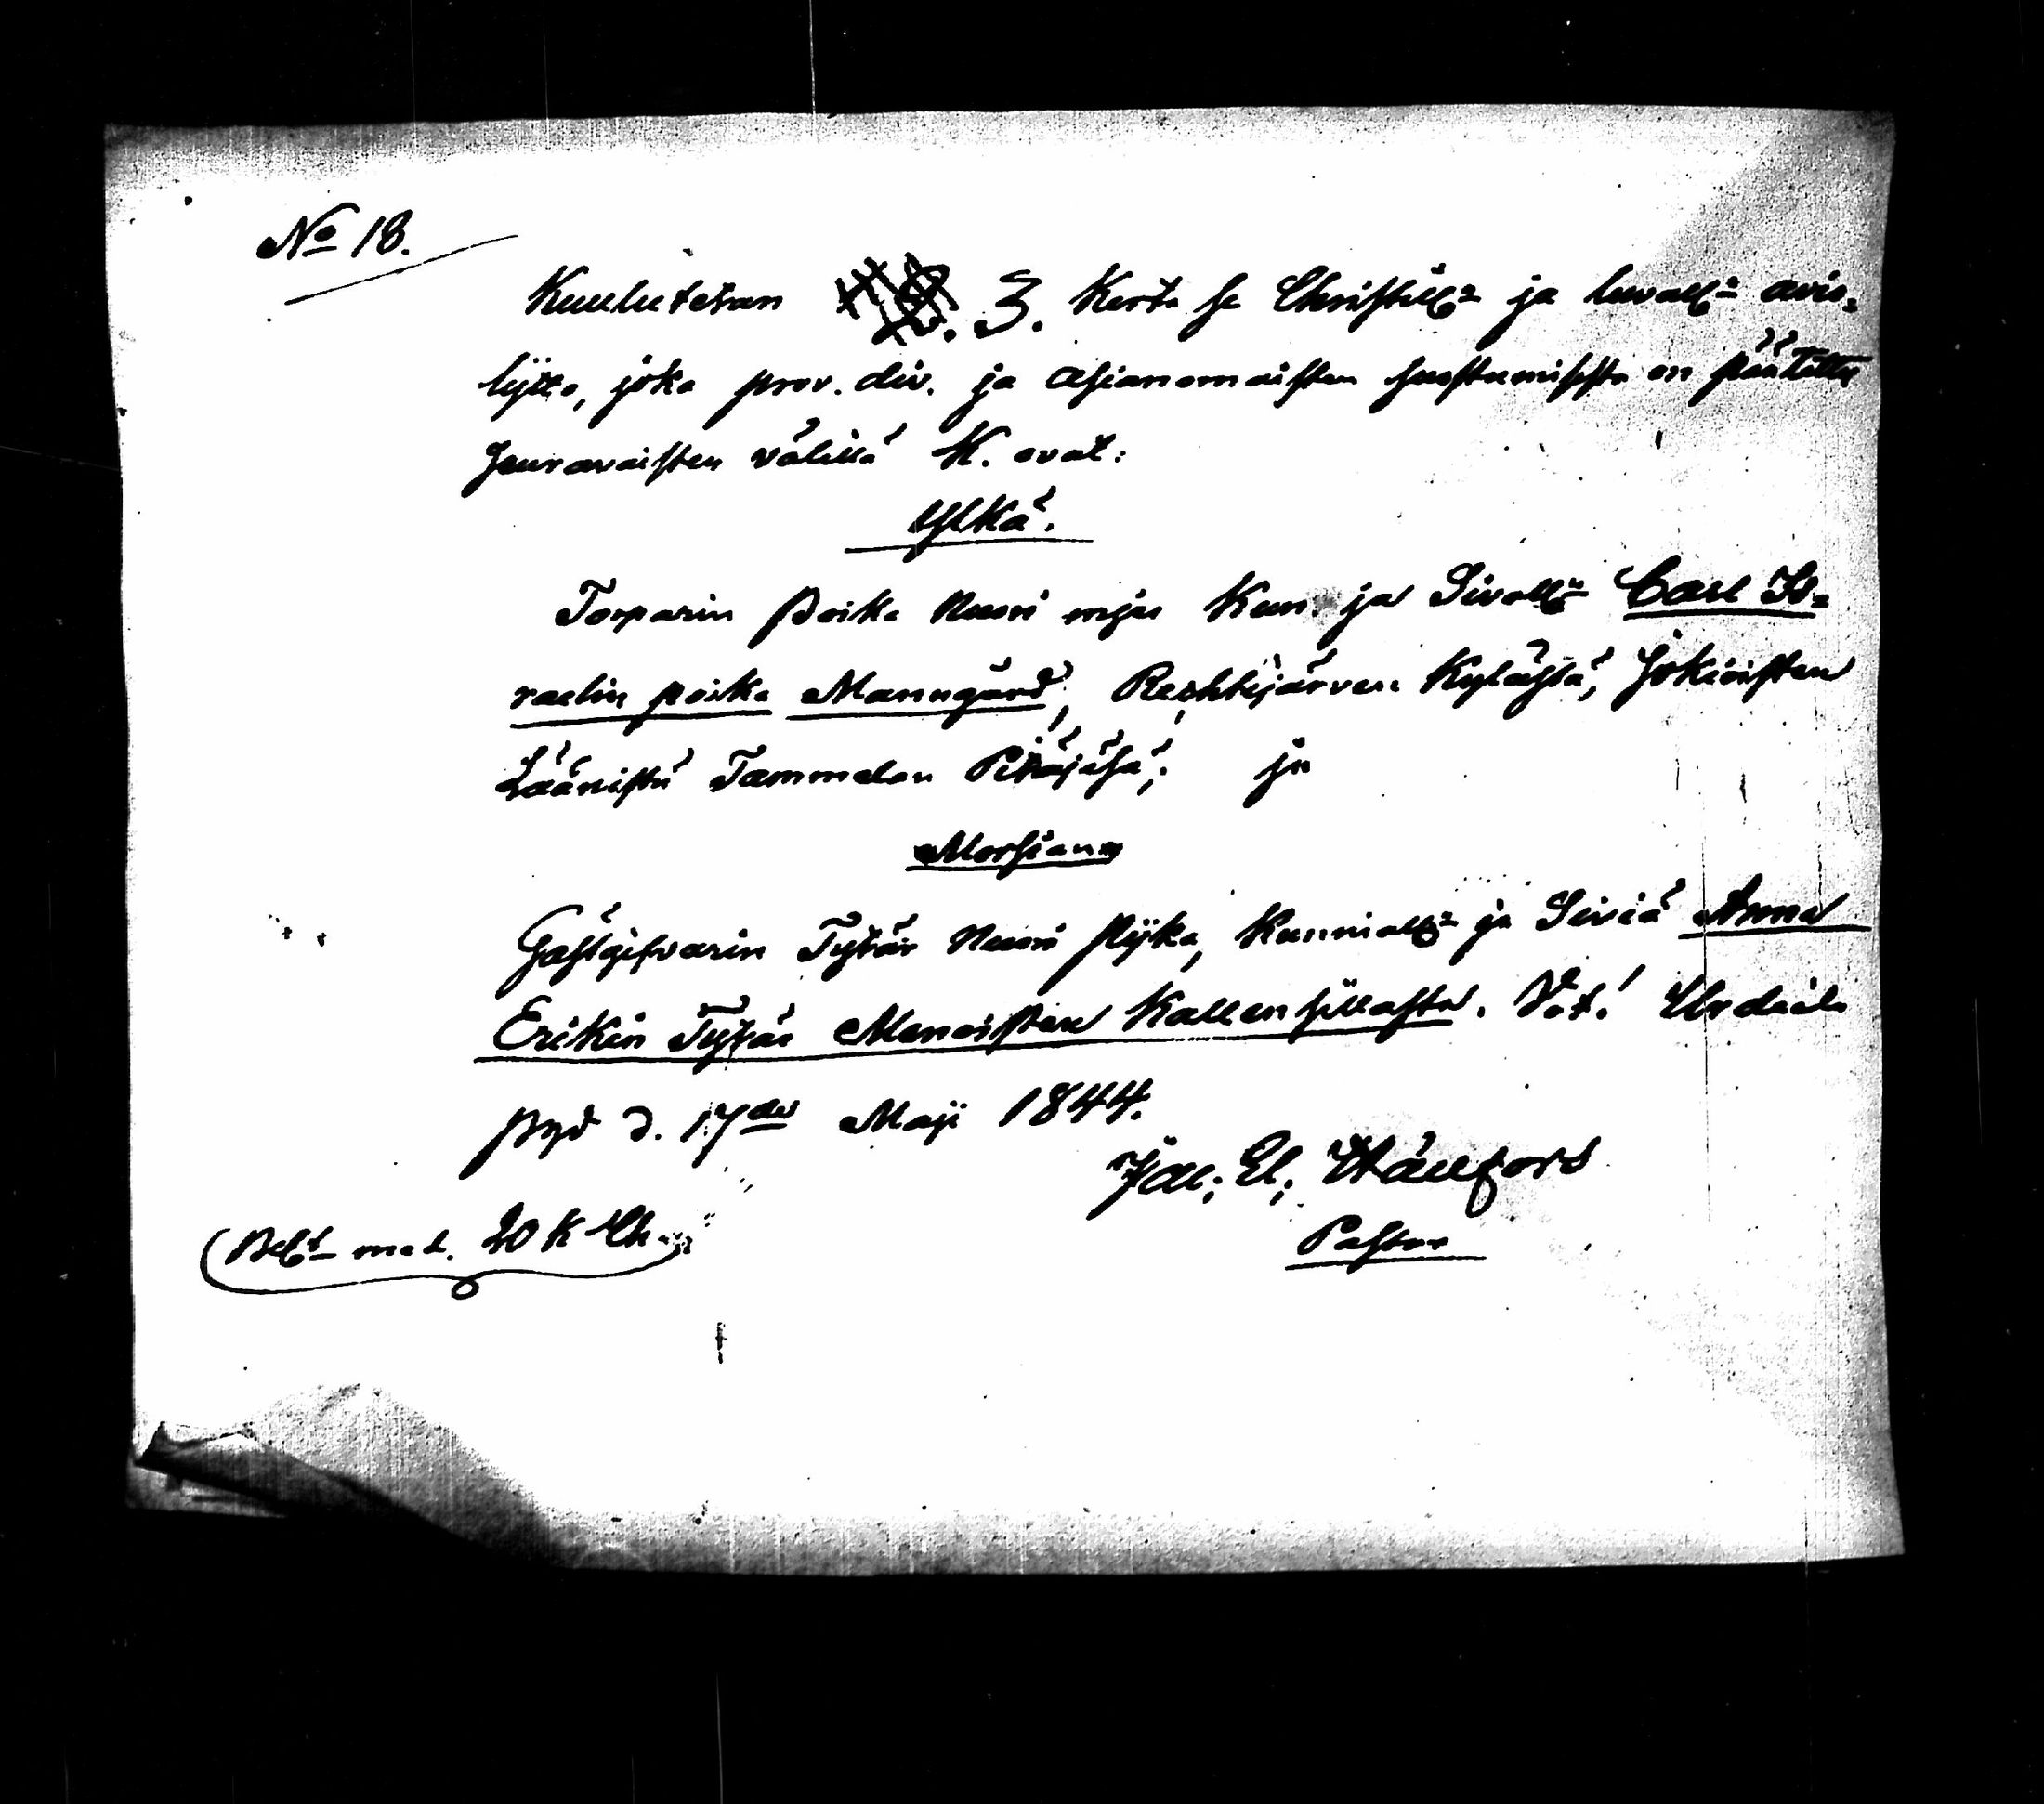 No 18.
Kuulutetan 3. Kerta se Christill= ja luvall= avio=
lijtto, joka prov. div. ja Asianomaisten suostumisesta on päätetty
seuravaisten välillä K. ovat:
Ylkä.
Torparin Poika Nuori mjes Kun. ja Sivoll= Carl Is=
raelin poika Manngård, Rechtijärven Kylästä, Jokioisten
Läänistä Tammelan Pitäjäsä; ja
Morsian
Gästgifvarin Tytär Nuori Pijka, Kunniall= ja Siviä Anna
Erikin Tytär Menoisten Kallensillasta. Vot! Urdiala
Pgd d. 17de Maji 1844.
Jac. El. Hällfors
Pastor
Belt med. 20 K